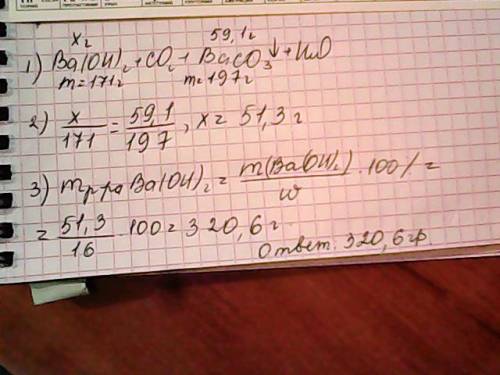 x г 59,1г
1) Ba(OH)₂ + CO₂ + BaCO₃↓ + H₂O
m = 171г m = 197г
2) x/171 = 59,1/197, x = 51,3 г
3) m р-ра Ba(OH)₂ = m(Ba(OH)₂)/w · 100% =
= 51,3/16 · 100 = 320,6 г
Ответ: 320,6 гр.